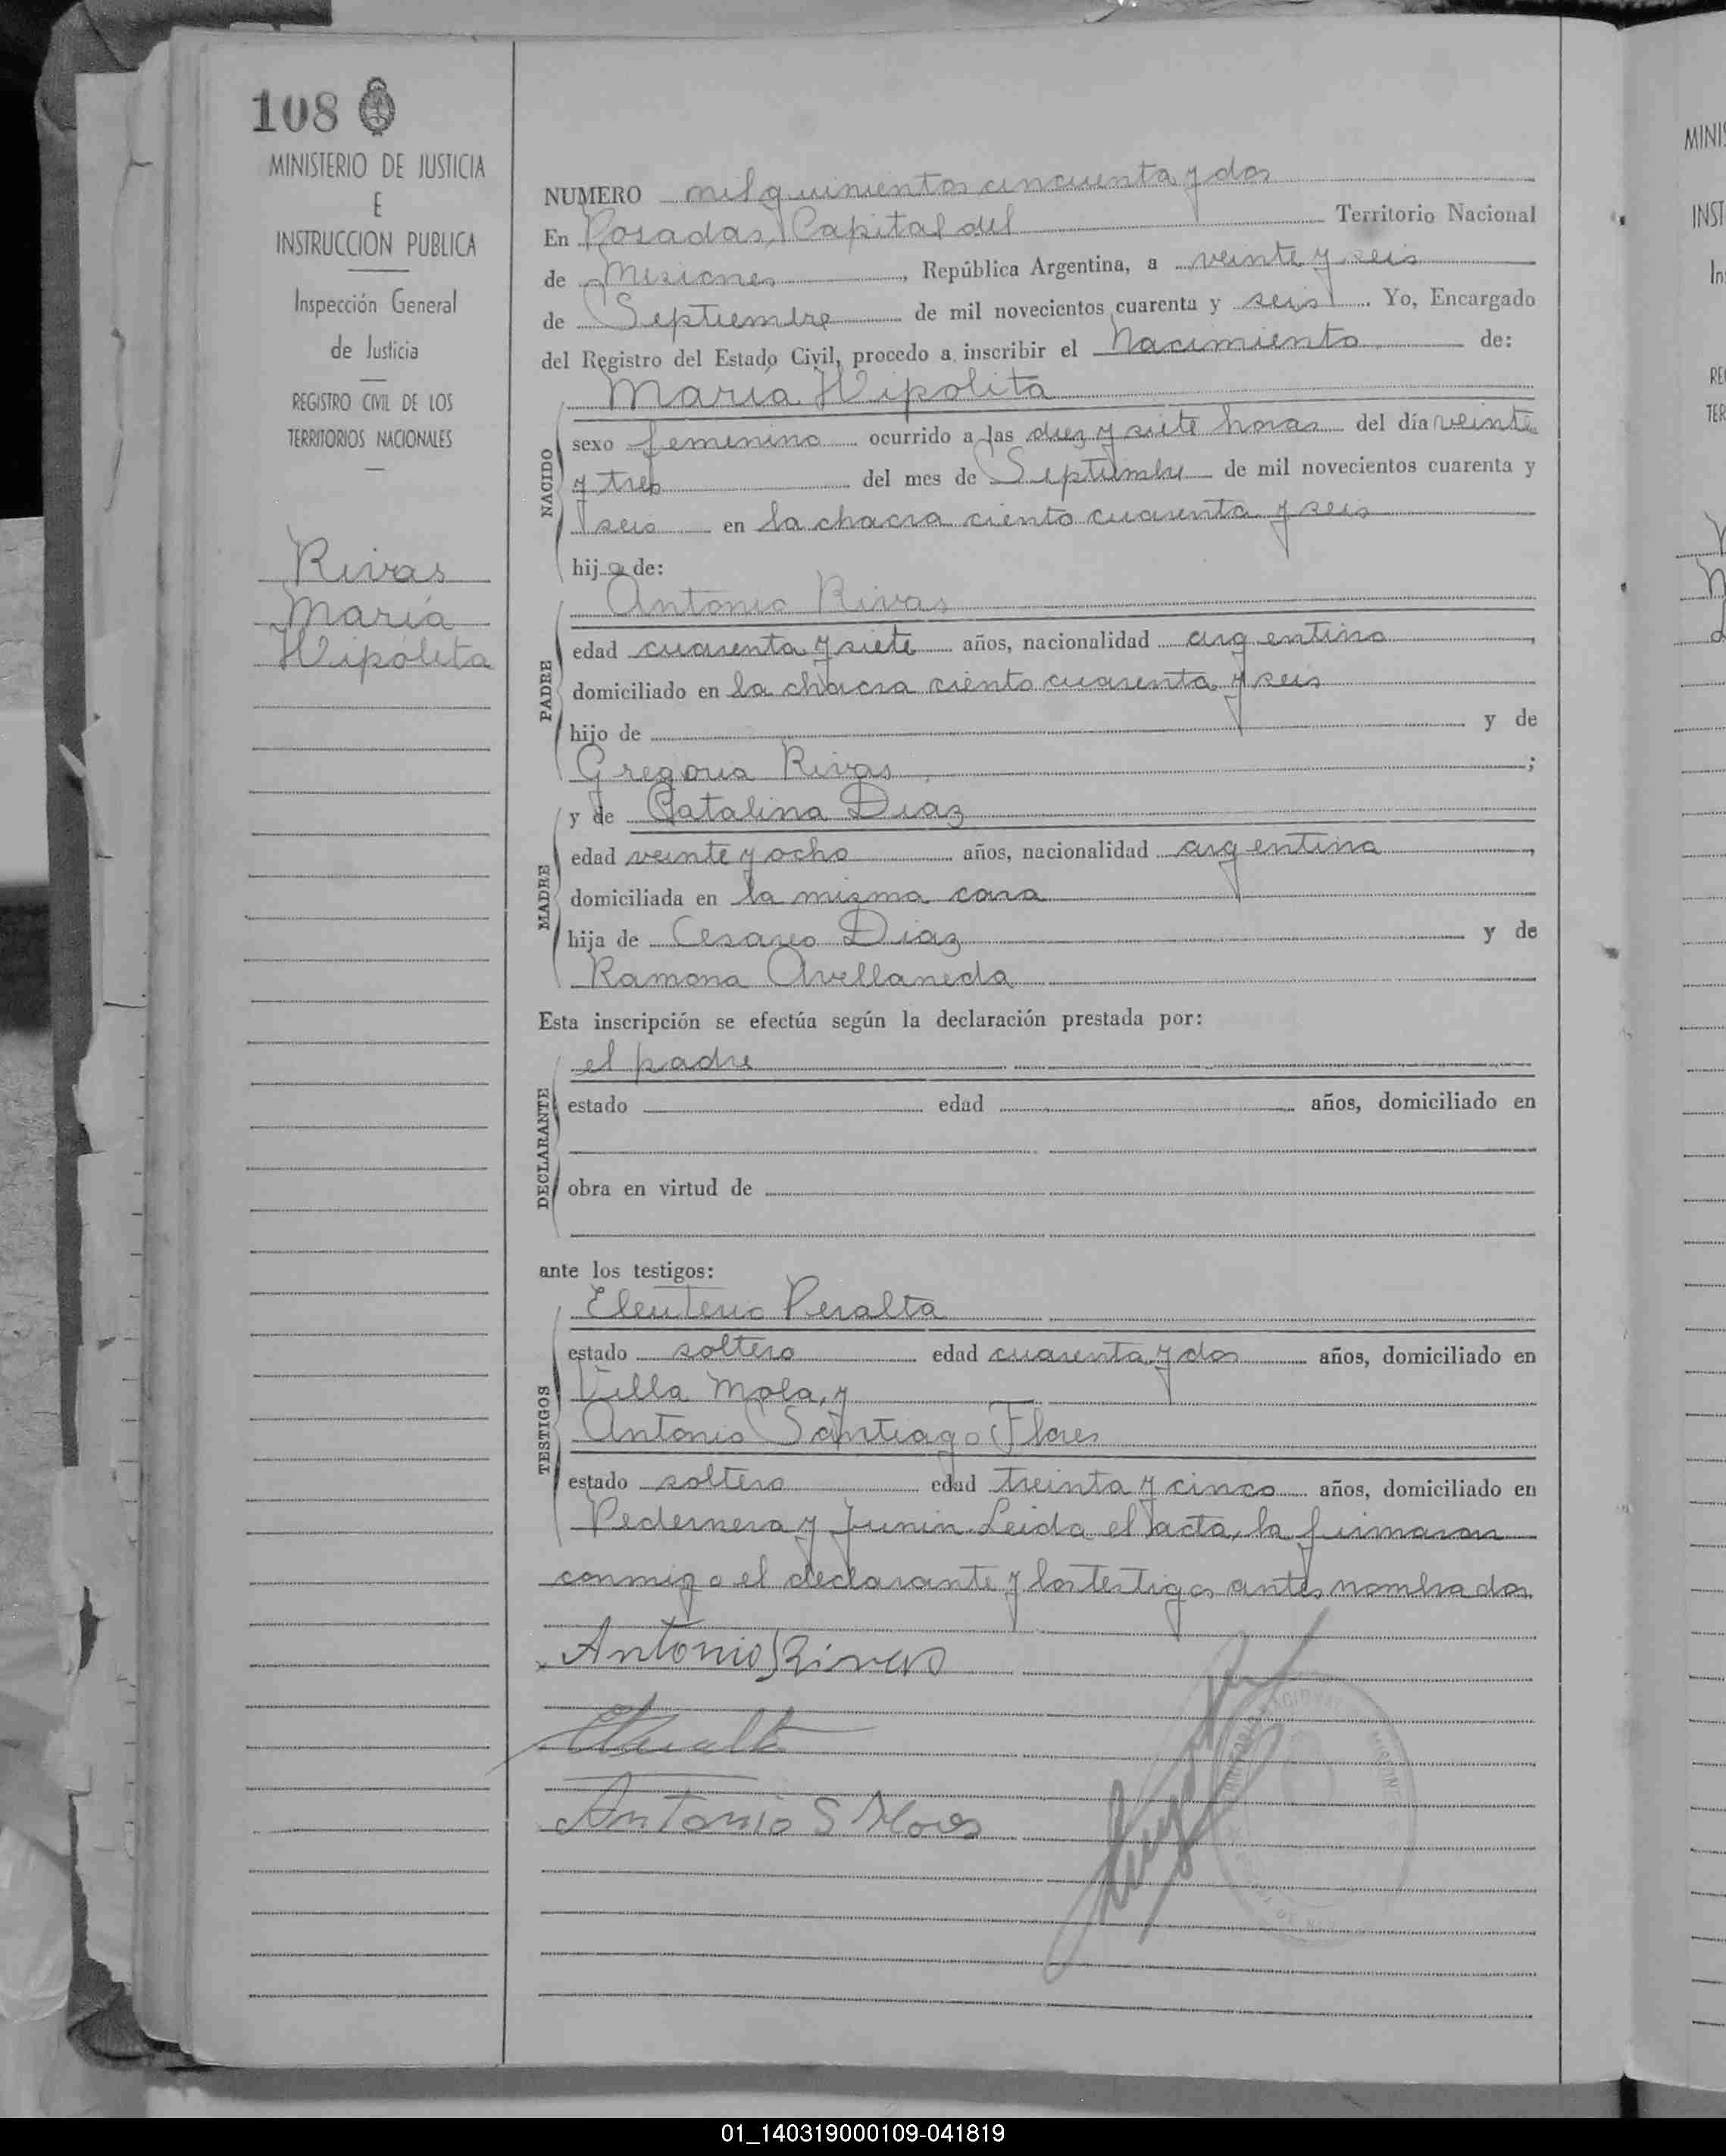 108
MINISTERIO DE JUSTICIA
E
INSTRUCCION PUBLICA
Inspección General
de Justicia
REGISTRO CIVIL DE LOS
TERRITORIOS NACIONALES
Rivas
María
Hipólita
NUMERO mil quinientos cincuenta y dos
En Posadas, Capital del Territorio Nacional
de Misiones, República Argentina, a veinte y seis
de Septiembre de mil novecientos cuarenta y seis. Yo, Encargado
del Registro del Estado Civil, procedo a inscribir el Nacimiento de:
María Hipolita
NACIDO
sexo femenino ocurrido a las diez y siete horas del día veinte
y tres del mes de Septiembre de mil novecientos cuarenta y
seis en la chacra ciento cuarenta y seis
hija de:
Antonio Rivas
PADRE
edad cuarenta y siete años, nacionalidad argentino,
domiciliado en la chacra ciento cuarenta y seis
hijo de y de
Gregoria Rivas,;
y de Catalina Diaz
MADRE
edad veinte y ocho años, nacionalidad argentina,
domiciliada en la misma casa
hija de Cesareo Diaz y de
Ramona Avellaneda
Esta inscripción se efectúa según la declaración prestada por:
el padre
DECLARANTE
estado edad años, domiciliado en
obra en virtud de
ante los testigos:
Eleuterio Peralta
TESTIGOS
estado soltero edad cuarenta y dos años, domiciliado en
Villa Mola, y
Antonio Santiago Flores
estado soltero edad treinta y cinco años, domiciliado en
Pedernera y Junin. Leida el acta, la firmaron
conmigo el declarante y los testigos antes nombrados.
Antonio Rivas
EPeralta
Antonio S Flores
01_140319000109-041819